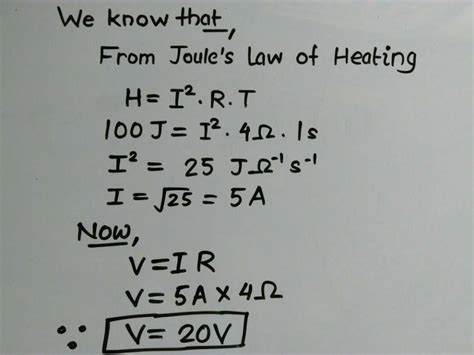 We know that,
From Joule's Law of Heating
H= I².R.T
100 J= I². 4Ω. 1s
I² = 25 JΩ⁻¹s⁻¹
I = √25 = 5A
Now,
V=IR
V= 5A × 4Ω
∵ V= 20V